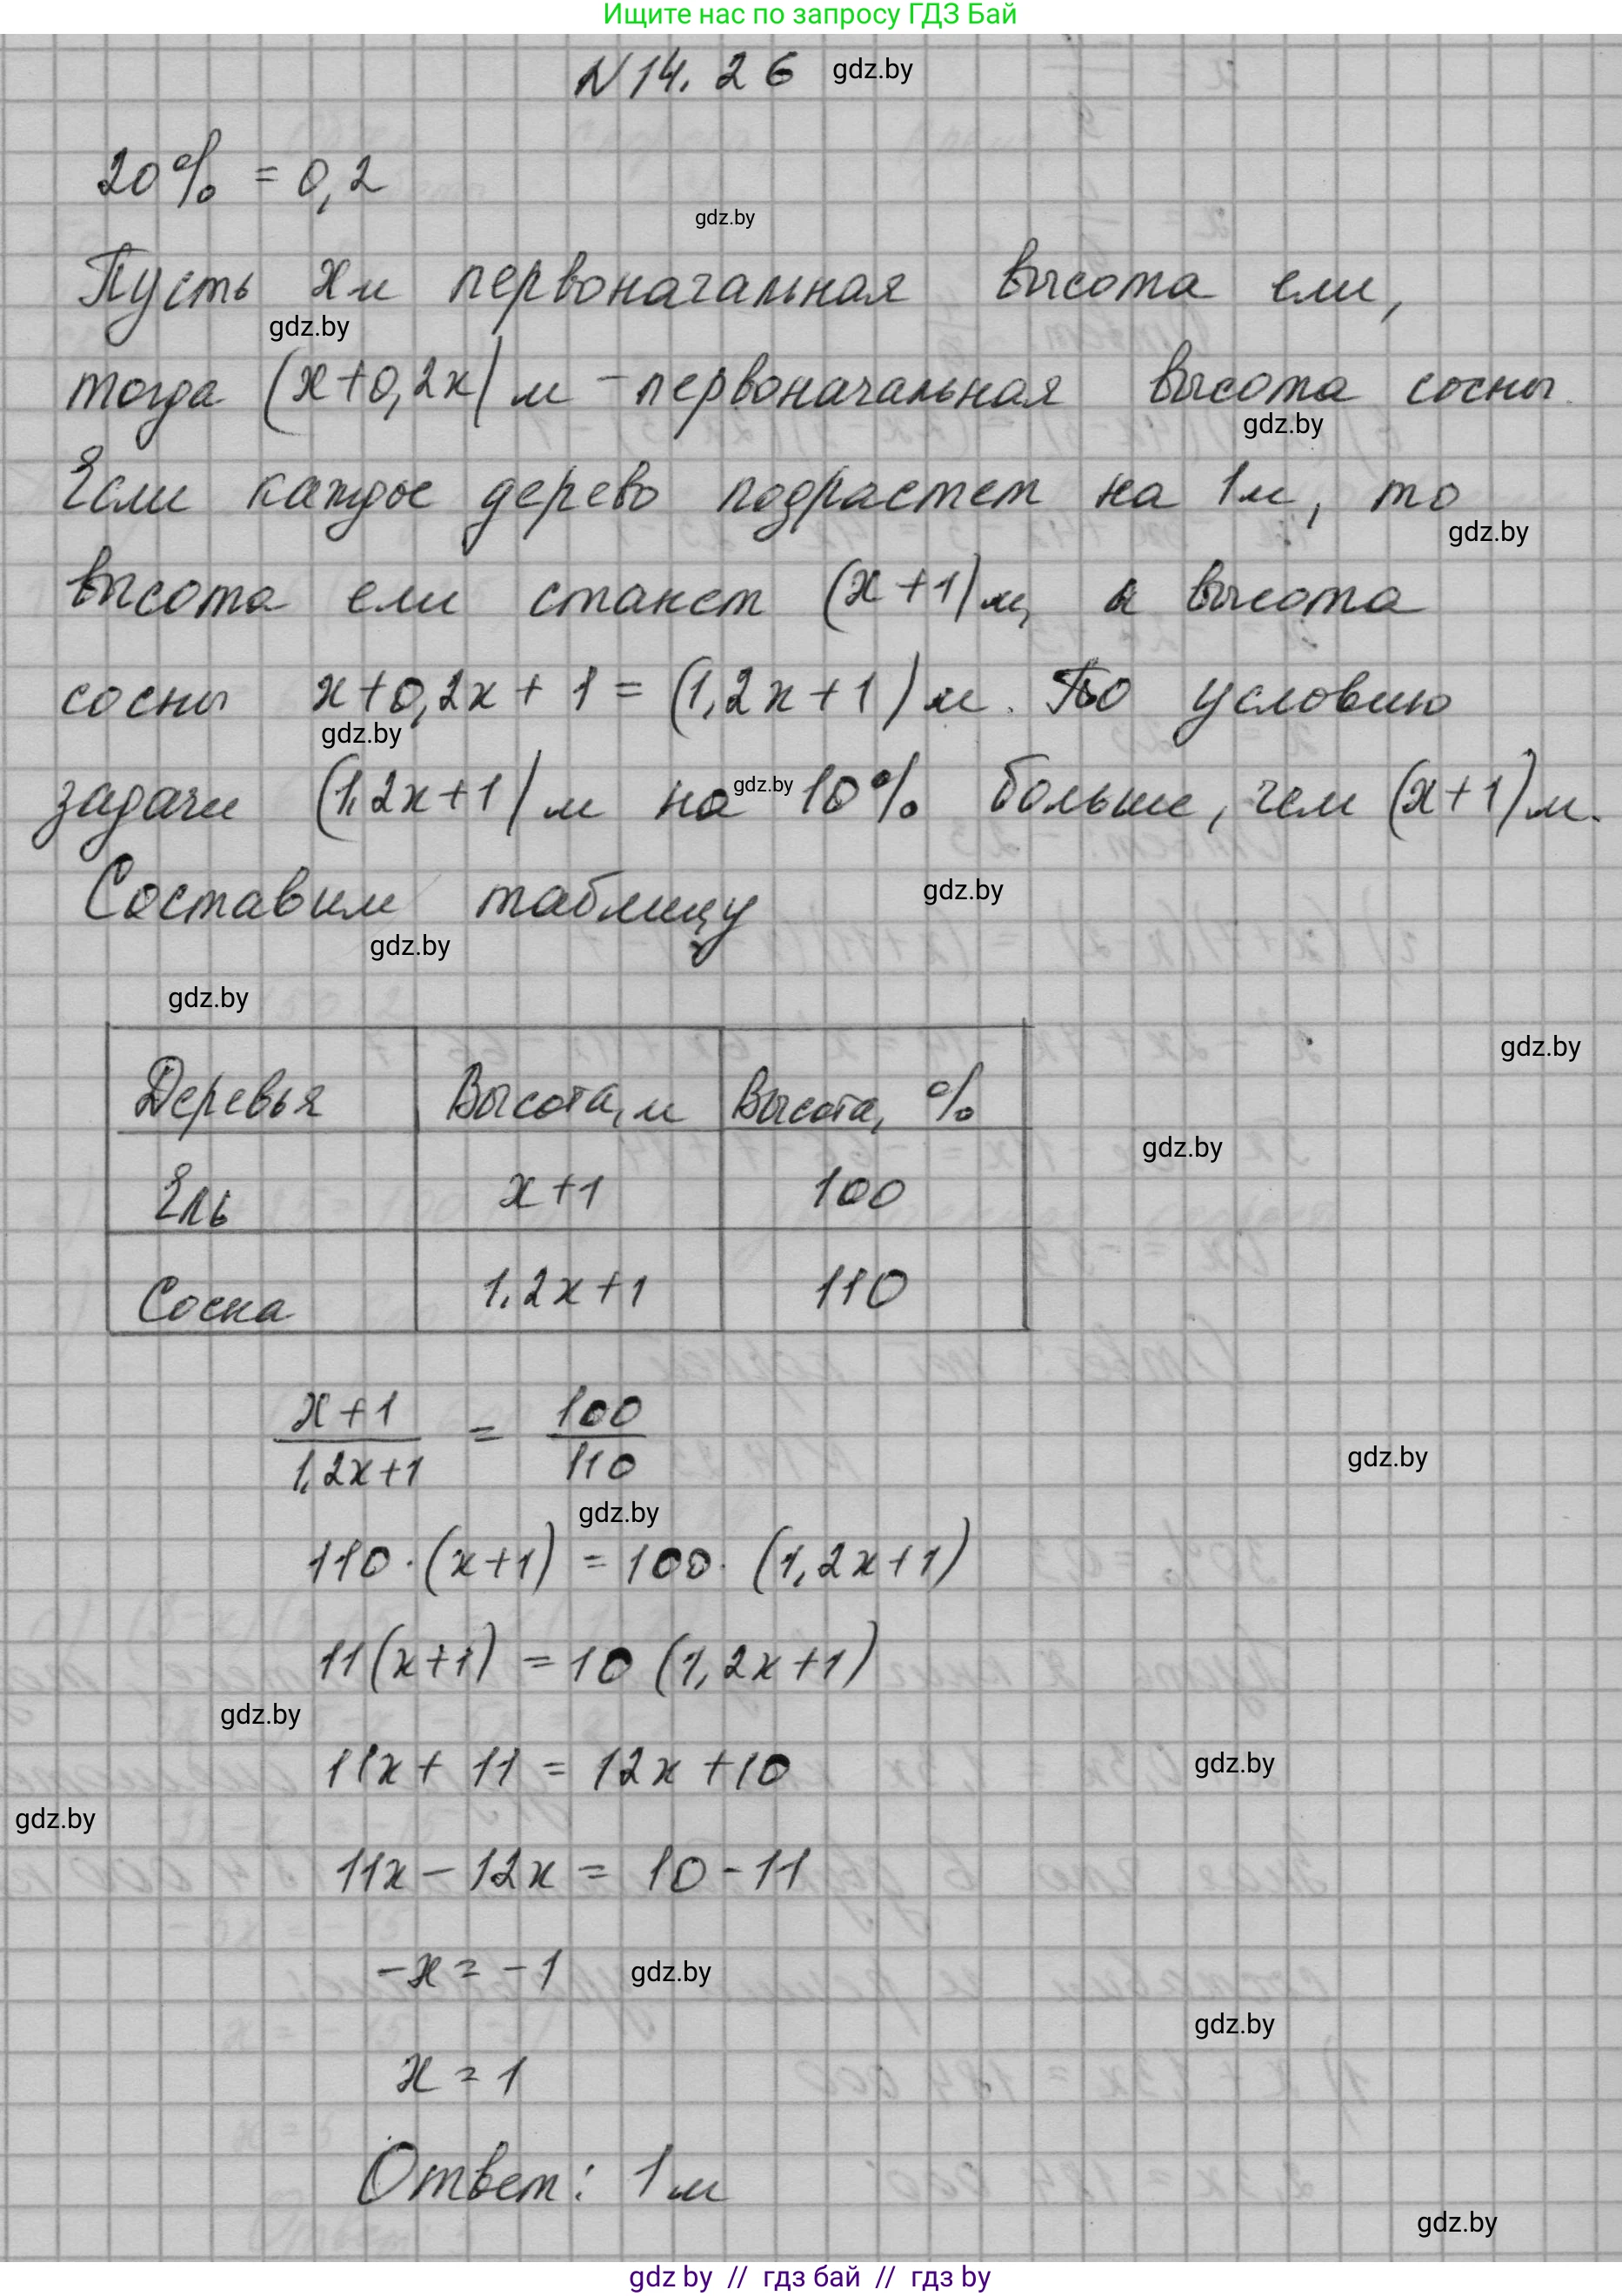 Ищите нас по запросу ГДЗ Бай
N 14.26 gdz.by
20% = 0,2
gdz.by
Пусть x м первоначальная высота ели,
gdz.by
тогда (x+0,2x) м - первоначальная высота сосны.
gdz.by
Если каждое дерево подрастет на 1м, то
gdz.by
высота ели станет (x+1) м, а высота
сосны x+0,2x+1 = (1,2x+1) м. По условию
gdz.by
задачи (1,2x+1) м на gdz.by 10% больше, чем (x+1) м.
Составим таблицу gdz.by
gdz.by
gdz.by
gdz.by
Деревья Высота, м Высота, %
gdz.by
Ель x+1 100
Сосна 1,2x+1 110
x+1 / 1,2x+1 = 100 / 110
gdz.by
gdz.by
110·(x+1) = 100·(1,2x+1)
11(x+1) = 10(1,2x+1)
gdz.by
11x + 11 = 12x + 10
gdz.by
gdz.by
11x - 12x = 10 - 11
-x = -1 gdz.by
gdz.by
x = 1
Ответ: 1 м
gdz.by
gdz by // гдз бай // гдз by